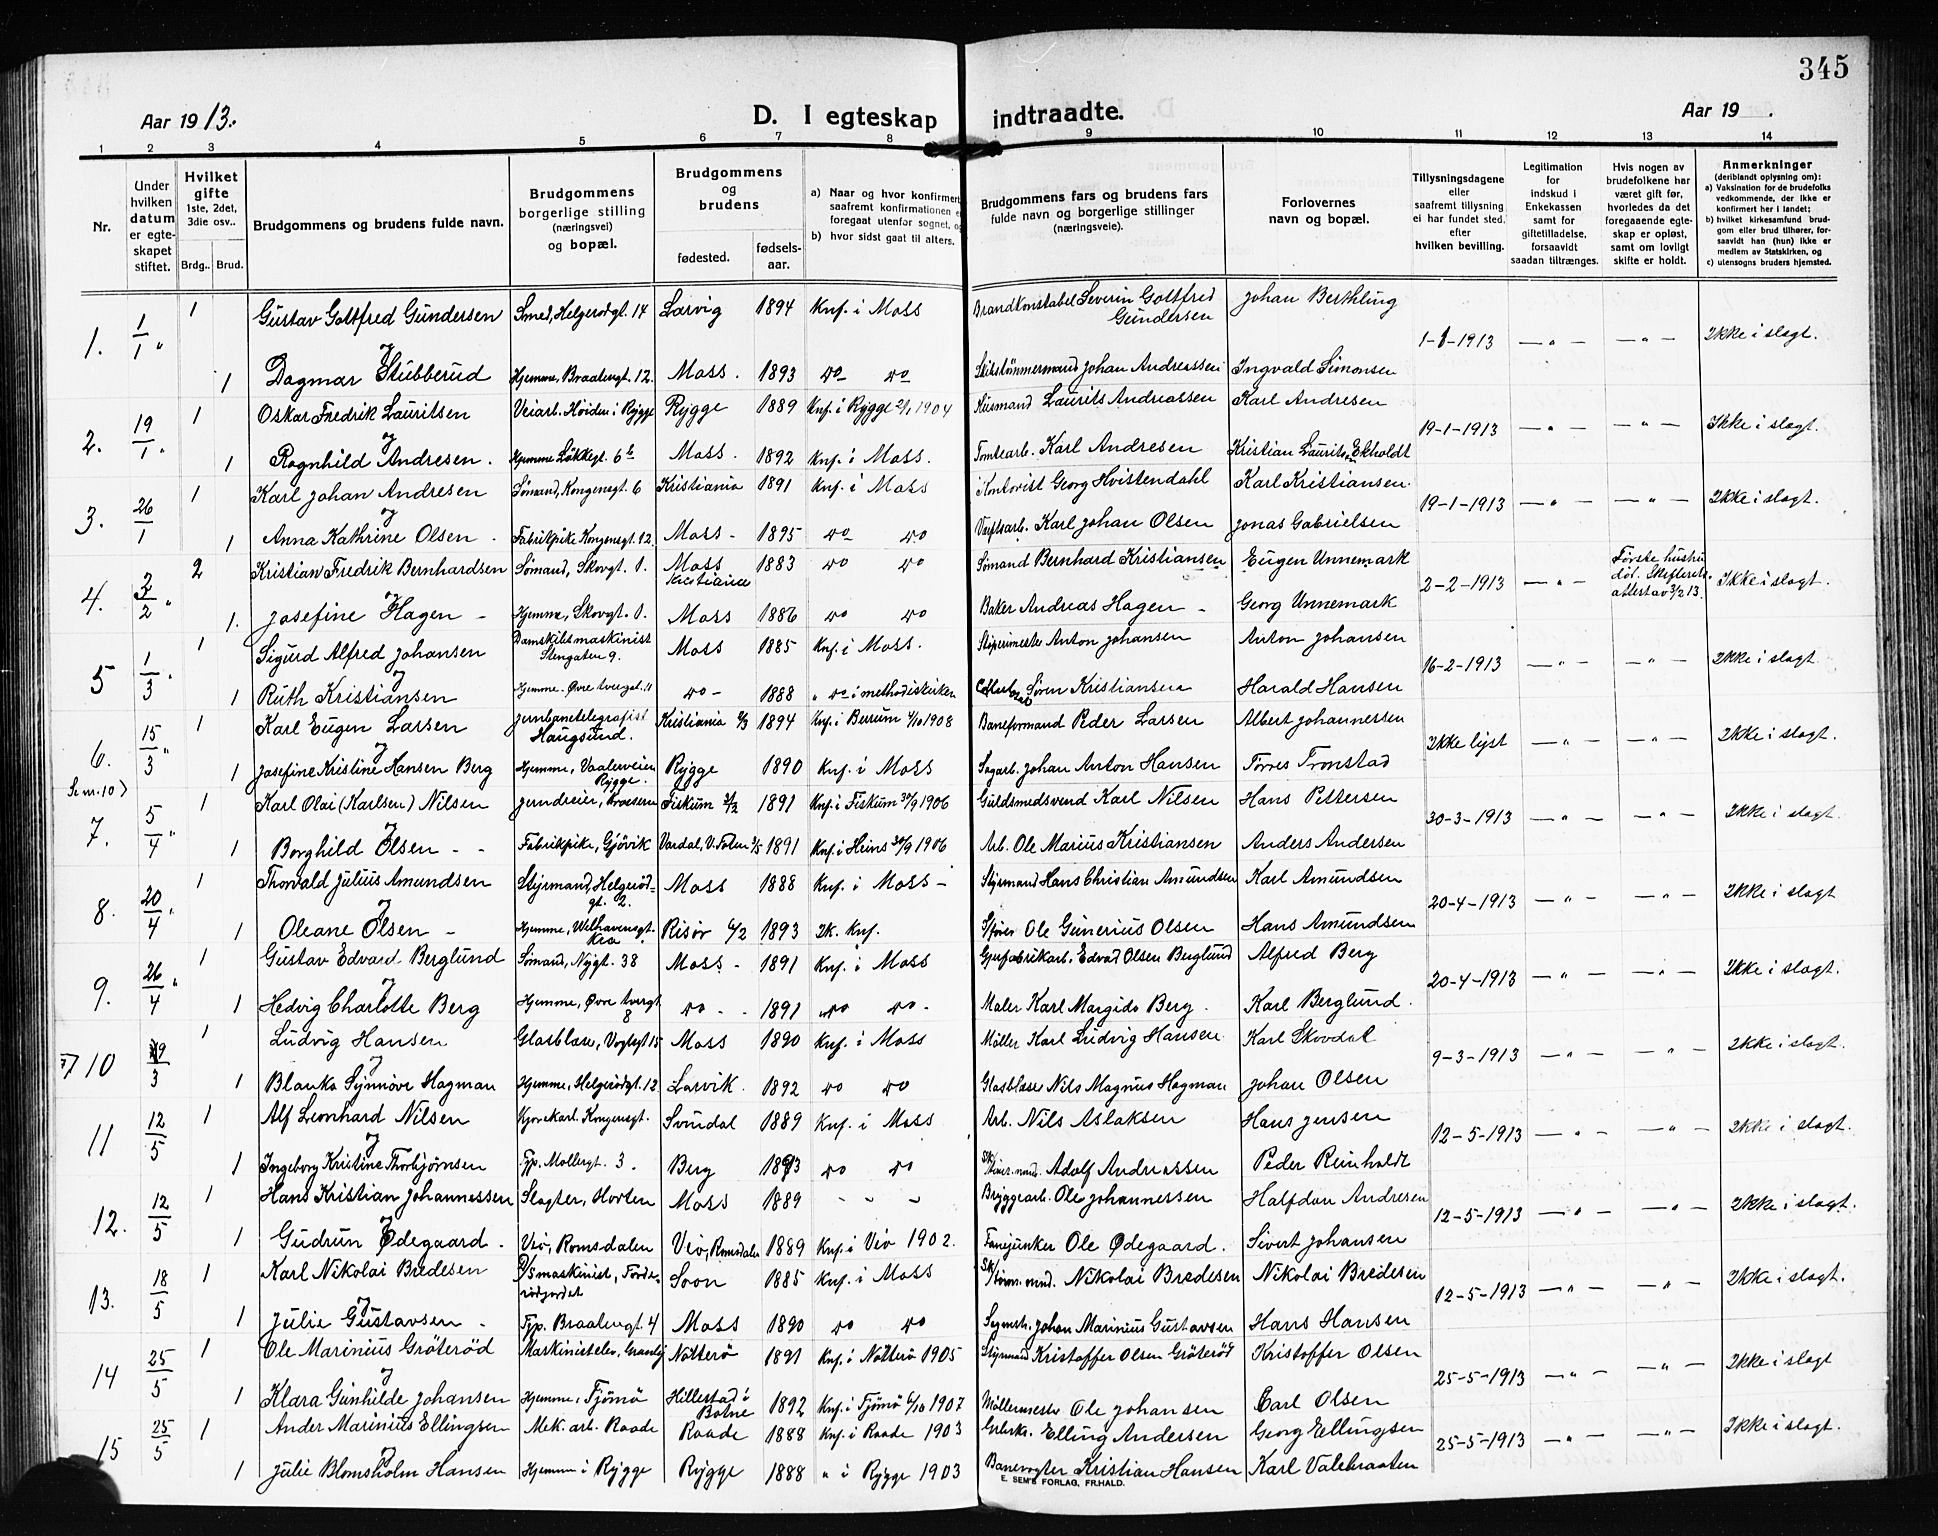 345
Aar 1913. D. I egteskap indtraadte. Aar 19 .
1 2 3 4 5 6 7 8 9 10 11 12 13 14
Nr.
Under hvilken datum er egte-skapet stiftet.
Hvilket gifte 1ste, 2det, 3die osv..
Brdg.. Brud.
Brudgommens og brudens fulde navn.
Brudgommens borgerlige stilling (næringsvei) og bopæl.
Brudgommens og brudens
fødested. fødsels-aar.
a) Naar og hvor konfirmert saafremt konfirmationen foregaat utenfor sognet,
b) hvor sidst gaat til alters.
Brudgommens fars og brudens fars fulde navn og borgerlige stillinger (næringsveie).
Forlovernes navn og bopæl.
Tillysningsdagene eller saafremt tillysning ei har fundet sted. efter hvilken bevilling.
Legitimation for indskud i Enkekassen samt for giftetilladelse, forsaavidt saadan tiltrænges.
Hvis nogen av brudefolkene har været gift før, hvorledes da det foregaaende egte-skap er opløst, samt om lovligt skifte er holdt.
Anmerkninger (deriblandt oplysning om): a) Vaksination for de brudefolks vedkommende, der ikke er konfirmert her i landet; b) hvilket kirkesamfund brud-gom eller brud tilhører, for-saavidt han (hun) ikke er medlem av Statskirken, og c) utensogns bruders hjemsted.
1. 1/1 " 1 Gustav Gottfred Gundersen Smed, Helgerødgt. 14 Larvig 1894 Knf. i Moss Brandkonstabel Severin Gottfred Gundersen Johan Berthling 1-1-1913 — " — — " — Ikke i slegt.
og
1 Dagmar Stubberud Hjemme, Braatengt. 12. Moss. 1893 do do Skibstømmermand Johan Andreassen Ingvald Simonsen
2. 19/1 " 1 Oskar Fredrik Lauritsen Veiarb. Høiden i Rygge Rygge 1889 Knf. i Rygge 2/1 1904 Husmand Laurits Andreassen Karl Andresen 19-1-1913 — " — — " — Ikke i slegt.
og
1 Ragnhild Andresen. Hjemme Løkkegt. 6b Moss. 1892 Knf. i Moss. Tomtearb. Karl Andresen Kristian Lauritsen Ekholdt
3. 26/1 1 Karl Johan Andresen Sømand, Kongensgt. 6 Kristiania 1891 Knf. i Moss Kontorist Georg Hvistendahl Karl Kristiansen 19-1-1913 — " — — " — Ikke i slegt.
og
1 Anna Kathrine Olsen. Fabrikpike Kongensgt. 12. Moss - 1895 do do Verftsarb. Karl Johan Olsen Jonas Gabrielsen
4. 2/2 " 2 Kristian Fredrik Bernhardsen Sømand, Skovgt. 1. Moss Kristiania 1883 do do Sømand Bernhard Kristiansen Eugen Unnemark 2-2-1913 — " — Første hustru død. Skifterets attest av 3/2 13. Ikke i slegt.
og
1. Josefine Hagen - Hjemme, Skovgt. 1. Moss 1886 do do Baker Andreas Hagen - Georg Unnemark
5 1/3 " 1 Sigurd Alfred Johansen Damskibsmaskinist Stengaten 9. Moss 1885 Knf. i Moss. Støperimester Anton Johansen Anton Johansen 16-2-1913 — " — — " — Ikke i slegt
og
1 Ruth Kristiansen Hjemme. Øvre tvergt. 11 do - 1888 " do i methodistkirken Søren Kristiansen Harald Hansen
6. 15/3 " 1 Karl Eugen Larsen Jernbanetelegrafist Haugsund. Kristiania 1894 Knf. i Bærum 4/10 1908 Baneformand Peder Larsen Albert Johannessen Ikke lyst — " — — " — Ikke i slegt.
og
1 Josefine Kristine Hansen Berg Hjemme, Vaalerveien Rygge. Rygge 1890 Knf. i Moss Sagarb. Johan Anton Hansen Torres Tronstad
Se nr. 10)
7. 5/4 " 1 Karl Olai (Karlsen) Nilsen Jerndreier, Fiskum 1891 Knf. i Fiskum 30/9 1906 Guldsmedsvend Karl Nilsen Hans Pettersen 30-3-1913 — " — — " — Ikke i slegt.
og
1 Borghild Olsen - - Fabrikpike, Gjøvik Vardal, V. Toten 1891 Knf. i Heins 30/9 1906 Arb. Ole Marius Kristiansen Anders Andersen
8. 20/4 " 1 Thorvald Julius Amundsen Styrmand, Helgerød-gt. 2. Moss 1888 Knf. i Moss - Styrmand Hans Christian Amundsen Karl Amundsen 20-4-1913 — " — — " — Ikke i slegt
og
1 Oleane Olsen - Hjemme, Welhavensgt. Kra. Risør 6/2 1893 Ik. Knf. Ole Gunerius Olsen Hans Amundsen
9. 26/4 " 1 Gustav Edvard Berglund Sømand, Nygt. 38 Moss - 1891 Knf. i Moss Edvad Olsen Berglund Alfred Berg 20-4-1913 — " — — " — Ikke i slegt.
og
1 Hedvig Charlotte Berg Hjemme, Øvre tvergt 8 do - - 1891 do do - Maler Karl Margido Berg. Karl Berglund.
10 9/3 1 Ludvig Hansen Glasblæser, Vogtsgt 15 Moss 1890 Knf. i Moss Møller Karl Ludvig Hansen Karl Skovdal 9-3-1913 — " — — " — Ikke i slegt.
og
1 Blanka Synnøve Hagman Hjemme, Helgerødgt. 12 Larvik. 1892 do do Glasblæser Nils Magnus Hagman Johan Olsen
11 12/5 1 Alf Leonhard Nilsen Kongensgt. Svindal 1889 Knf. i Moss Arb. Nils Aslaksen Hans Jensen 12-5-1913 — " — — " — Ikke i slegt.
og
1 Ingeborg Kristine Thorbjørnsen Fp. Møllergt. 3. Berg 1893 do do Adolf Andreassen Peder Reinholdt
12. 12/5 1 Hans Kristian Johannessen Slagter, Horten Moss 1889 - - - Bryggearb. Ole Johannessen Halfdan Andresen 12-5-1913 — " — — " — Ikke i slegt.
og
1 Gudrun Ødegaard. Veø, Romsdalen Veø, Romsdalen 1889 Knf. i Veø 1902. Fanejunker Ole Ødegaard. Sivert Johansen
13. 18/5 1 Karl Nikolai Bredesen D/S maskinist, Soon 1885 Knf. i Moss Nikolai Bredesen Nikolai Bredesen 12-5-1913 — " — — " — Ikke i slegt.
og
1 Julie Gustavsen - Fp. Braatengt. 4 Moss 1890 do do Johan Marinius Gustavsen Hans Hansen
14 25/5 1 Ole Marinius Grøterød Maskinistelev, Nøtterø 1891 Knf. i Nøtterø 1905 Styrmand Kristoffer Olsen Grøterød Kristoffer Olsen 25-5-1913 — " — — " — Ikke i slegt
og
1 Klara Gunhilde Johansen Hjemme, Tjømø Hillestad i Botne 1892 Knf. i Tjømø 6/10 1907 Møllermester Ole Johansen Carl Olsen
15 25/5 1 Ander Marinius Ellingsen Mek. arb. Raade Raade 1888 Knf. i Raade 1903 Elling Andersen Georg Ellingsen 25-5-1913 — " — — " — Ikke i slegt.
og
1 Julie Blomsholm Hansen Hjemme i Rygge Rygge 1888 " i Rygge 1903 Banevogter Kristian Hansen Karl Valebraaten
E. SEM'S FORLAG, FR.HALD.